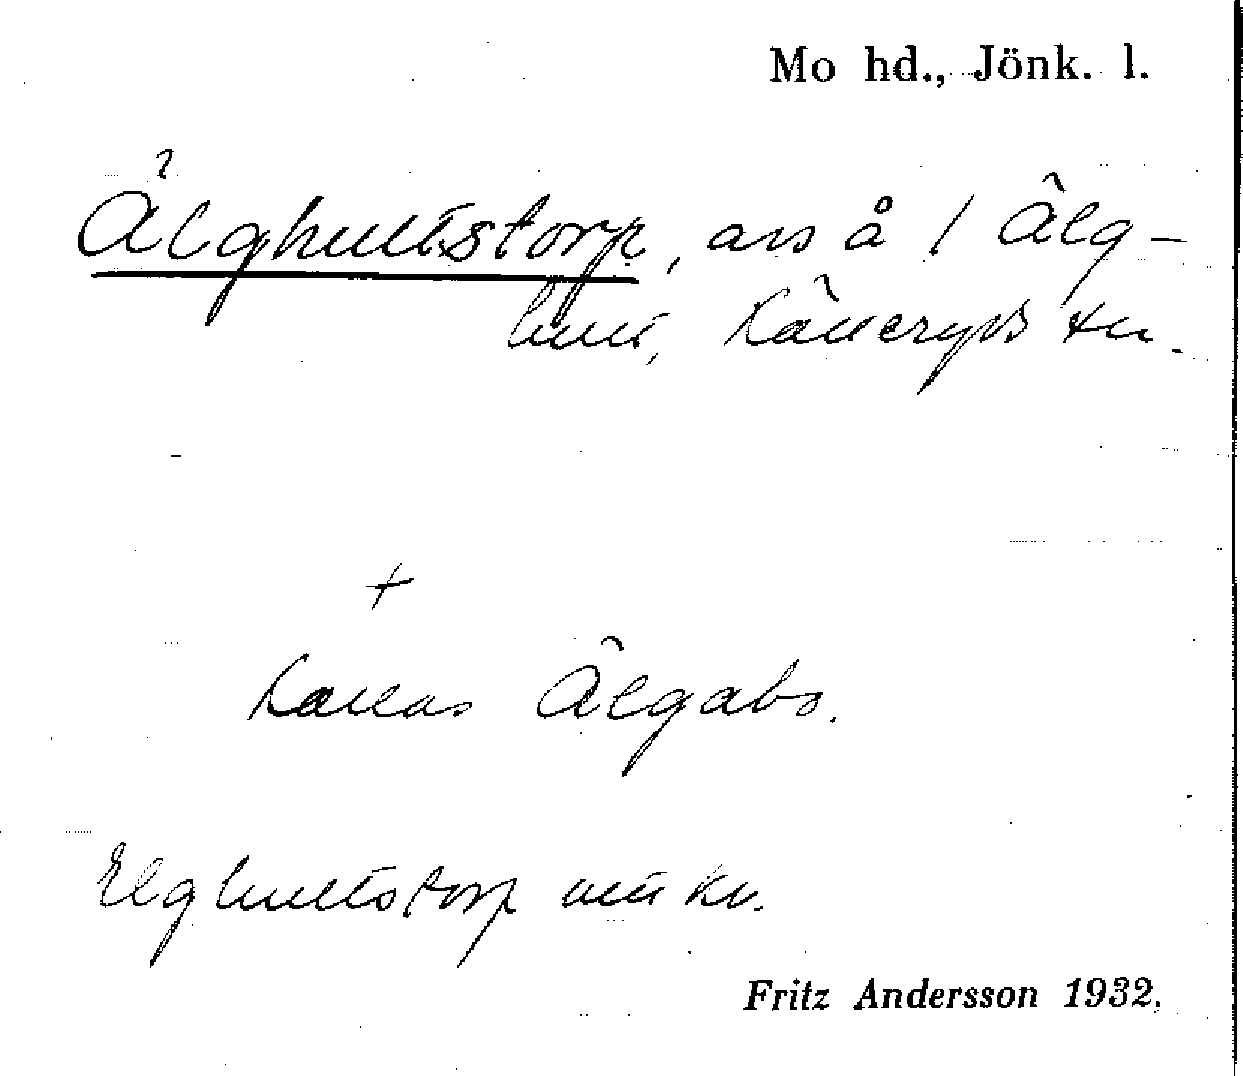 Mo hd., Jönk. l.
Älghultstorp, avs å / Älg-
hult, Källeryds sn.
+
Kallas Älgabo.
Elghultstorp
Fritz Andersson 1932.